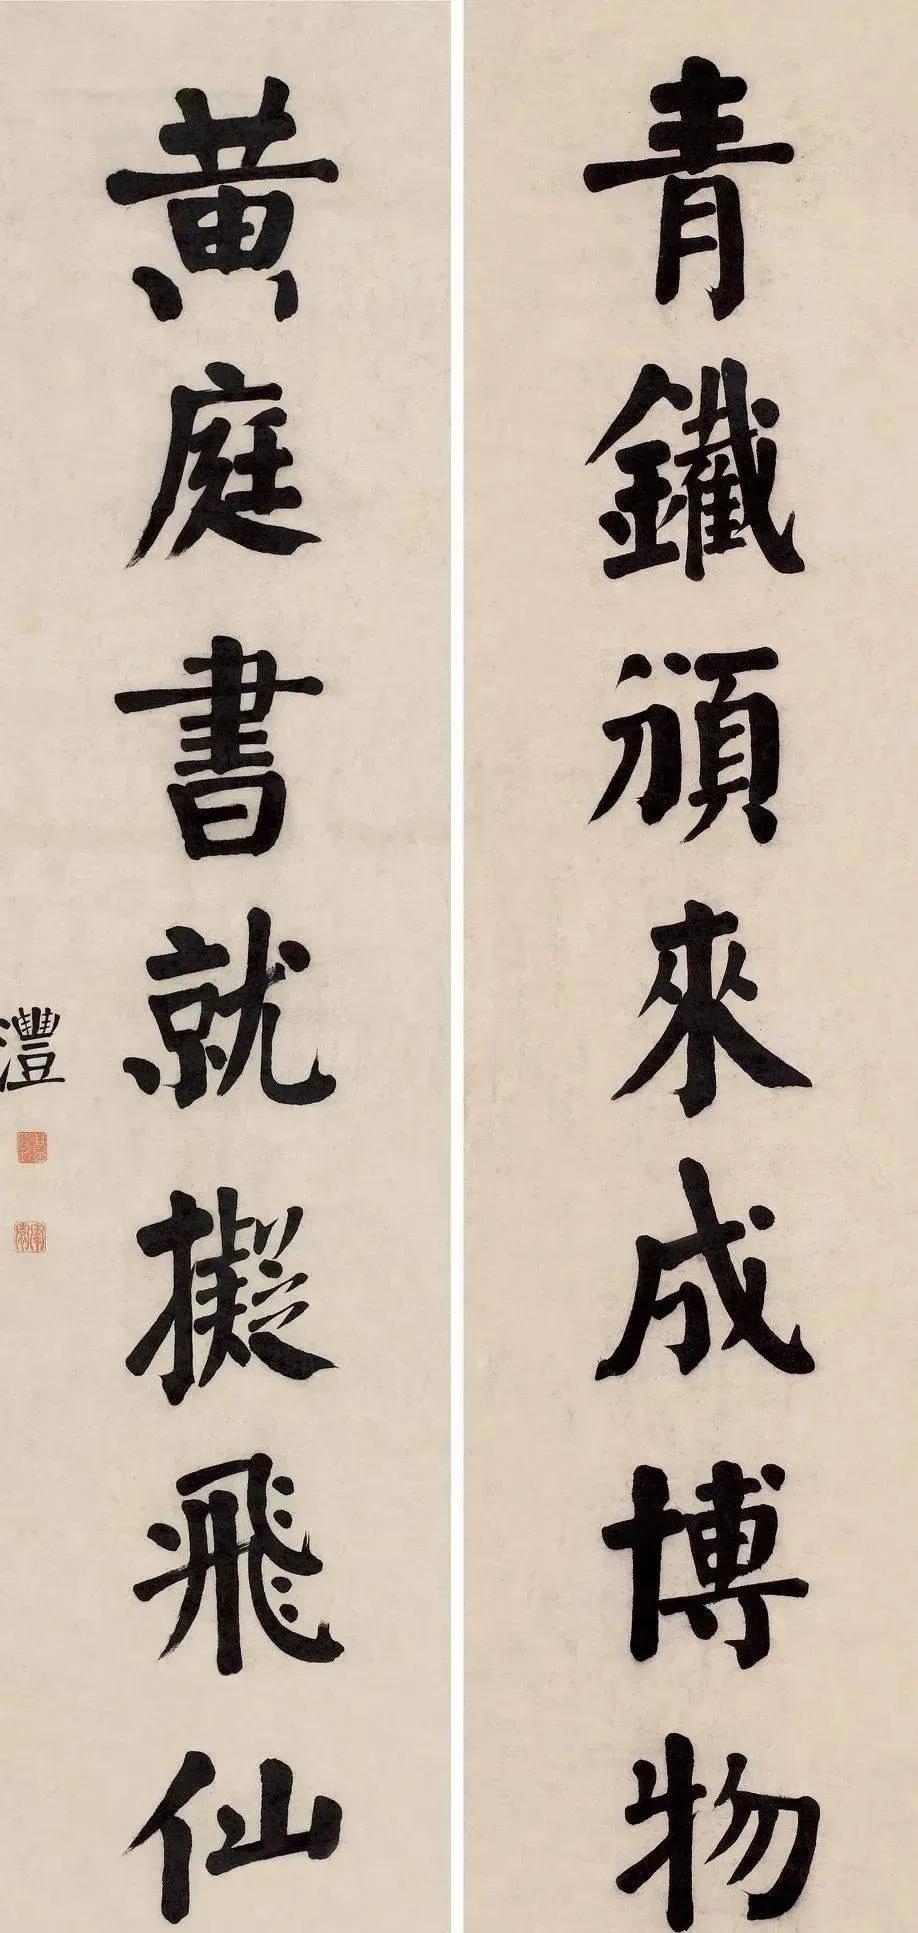 青鐵頒來成博物
黃庭書就擬飛仙
澧